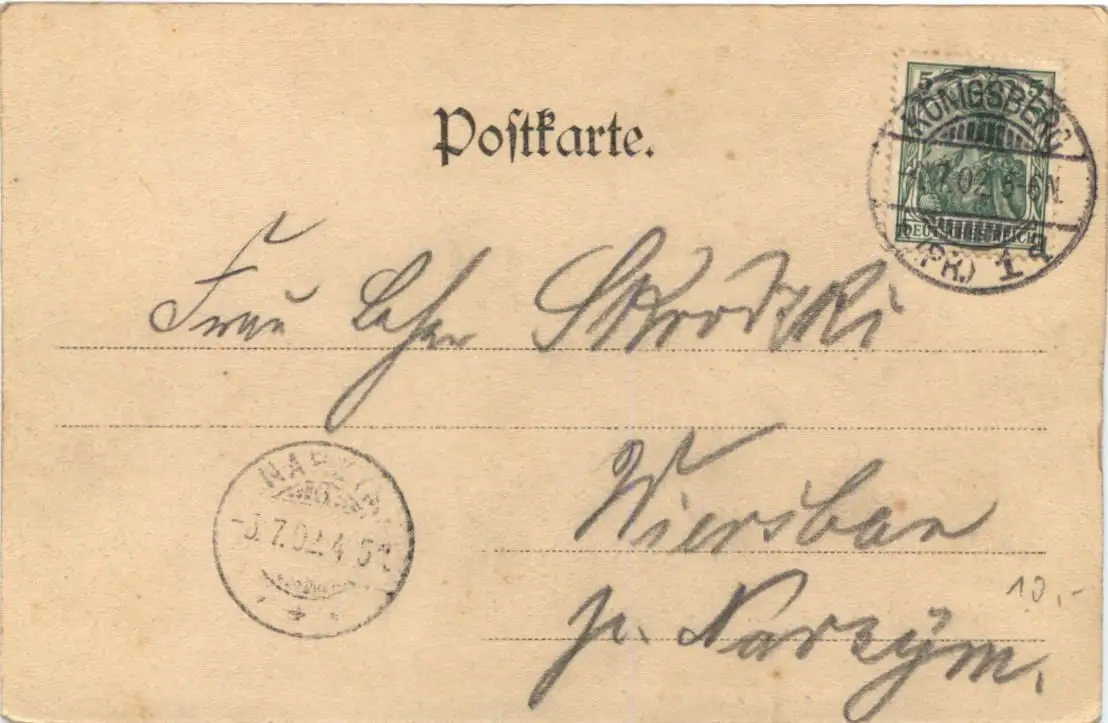 Postkarte.
5 5
KÖNIGSBERG
7.02. 5-6N.
(PR.) 1a
DEUTSCHES REICH
Frau Lehrer Skrodzki
Wiersbau
p. Narzym.
NARZYM
-3.7.02. 4-5N
10.-